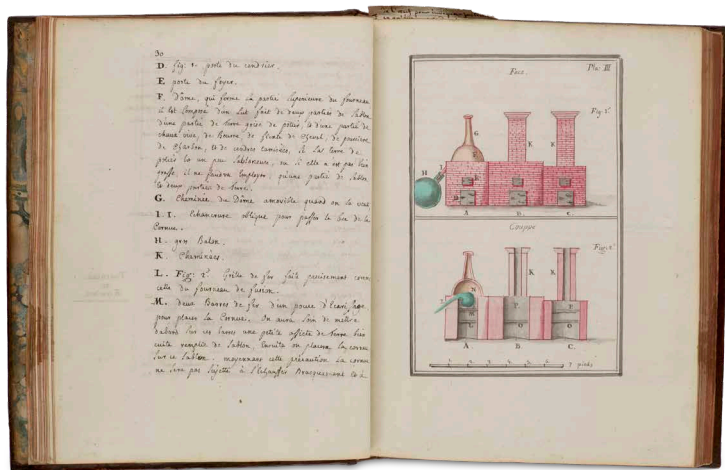 30
D. fig: 1. porte du cendrier.
E porte du foyer.
F. Dôme, qui forme la partie supérieure du fourneau
il est composé d'un Lut fait de deux parties de Sable
d'une partie de terre grise de potier, et d'une partie de
chaux vive, de Bourre, de fiente de Cheval, de poussière
de Charbon, et de cendres tamisées, Si la terre de
potier est un peu Sabloneuse, ou si elle n'est pas bien
grasse, il ne faudra employer, qu'une partie de Sable,
et deux parties de terre.
G. Cheminée du Dôme amovible quand on le veut
I. I. echancrure oblique pour passer le bec de la
Cornue.
H. gros Balon.
K. Cheminées.
L. Fig: 2e. Grille de fer faite précisément comme
celle du fourneau de fusion.
M. deux Barres de fer d'un pouce d'Ecarissage
pour placer la Cornue. On aura soin de mettre
sur ces barres une petite assiette de terre bien
cuite remplie de Sable. Ensuite on placera la cornue
sur ce Sable. moyennant cette précaution la cornue
ne sera pas sujette à s'échauffer Brusquement et à
Pla: III
Face.
Fig: 1e.
G
H
I
F
K
K
E
D
A
B
C
Coupe
Fig: 2e
K
K
N
P
P
M
L
O
O
A
B
C.
1 2 3 4 5 6 7 pieds